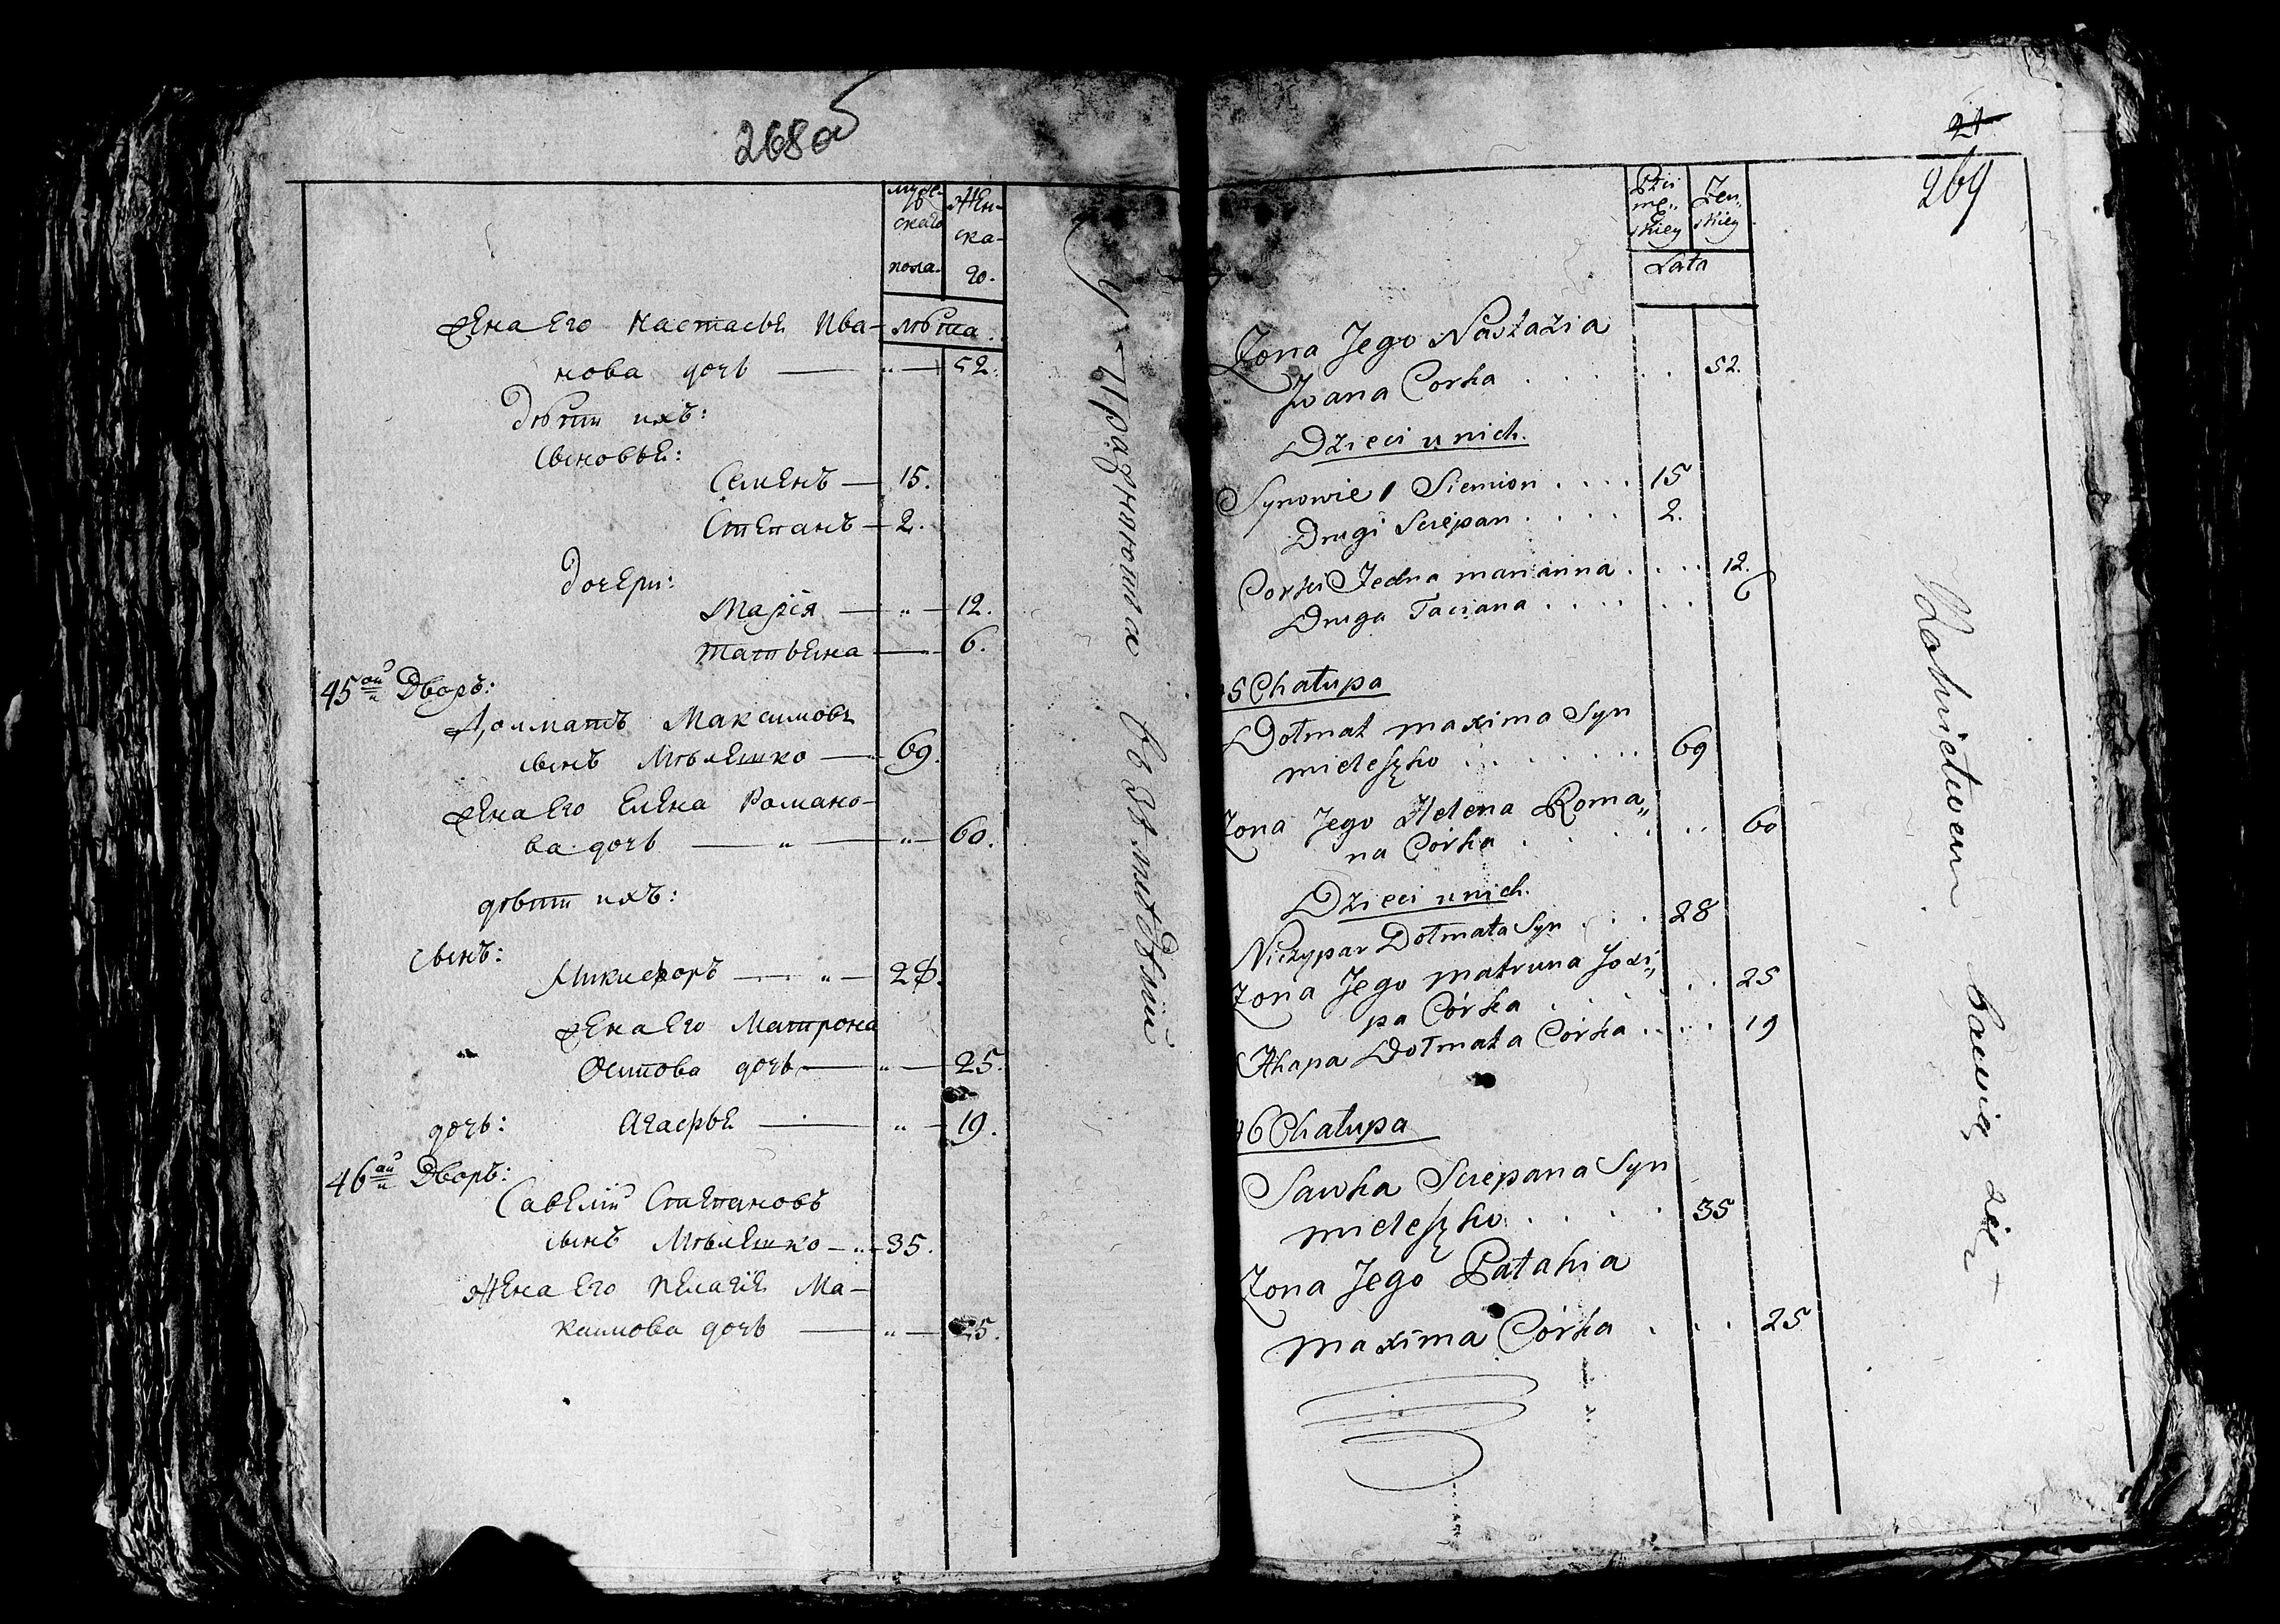 268об
мужскаго пола. | женскаго.
Жена Его Настасья Ива-
лѣта.
нова дочь — „ — 52.
Дѣти ихъ:
Сыновья:
Семенъ — 15.
Степанъ — 2.
Дочери:
Марія — „ — 12.
Татьяна — 6.
45ой Дворъ:
Долматъ Максимовъ
сынъ Мѣлешко — 69.
Жена Его Елена Романо-
ва дочь — „ — „ — 60.
дѣти ихъ:
Сынъ:
Никифоръ — „ — 28.
Жена Его Матрона
Осипова дочь — „ — 25.
дочь: Агафья — „ — 19.
46ой Дворъ:
Савелій Степановъ
сынъ Мѣлешко — „ — 35.
Жена Его Пелагія Ма-
ксимова дочь — „ — 25.
Упражняются въ
21
269
Płci mę„skiey | Żen„skiey
Lata
Zona Jego Nastazia
Jwana Corka . . . . . 52.
Dzieci u nich.
Synowie 1 Siemion . . . . 15
Drugi Sciepan . . . . 2.
Corki Jedna marianna . . . . 12.
Druga Taciana . . . . . . 6
45 Chałupa
Dołmat maxima Syn
mieleszko . . . . . . . 69
Zona Jego Helena Roma„
na Córka . . . . . 60
Dzieci u nich.
Niczypar Dołmata Syn . . . 28
Zona Jego matruna Joxi„
pa Córka . . . . . 25
Ahapa Dołmata Córka . . . . 19
46 Chałupa
Sawka Sciepana Syn
mieleszko . . . . . 35
Zona Jego Pałahia
maxima Córka . . . . 25
Rolnictwem bawią się